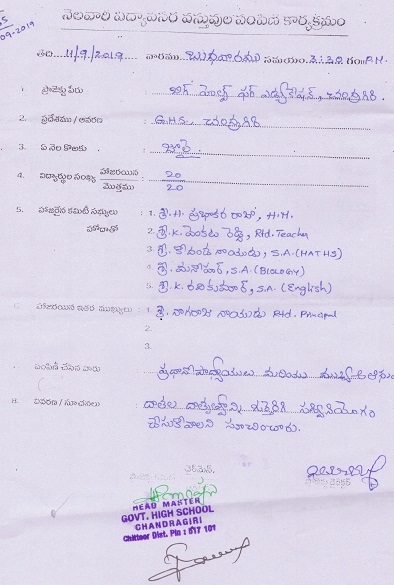 నెలవారి విద్యావసర వస్తువుల పంపిణి కార్యక్రమం
-09-2019
తేది 11/9/2019 వారము బుధవారము సమయం 3:30 గం P.M.
1. ప్రాజెక్టు పేరు : బిగ్ హెల్ప్ ఫర్ ఎడ్యుకేషన్, చంద్రగిరి.
2. ప్రదేశము / ఆవరణ : G.H.S. చంద్రగిరి
3. ఏ నెల కొఱకు : జూలై.
4. విద్యార్థుల సంఖ్య హాజరయిన : 20
మొత్తము 20
5. హాజరైన కమిటీ సభ్యులు : 1. శ్రీ. H. ప్రభాకర రాజు, H.M.
హోదాతో 2. శ్రీ. K. వెంకట రెడ్డి, Rtd. Teacher
3. శ్రీ. కోదండ నాయుడు, S.A. (MATHS)
4. శ్రీ. మనోహర్, S.A. (BIOLOGY)
5. శ్రీ. K. రవికుమార్, S.A. (English)
హాజరయిన ఇతర ముఖ్యులు : 1. శ్రీ. నాగరాజ నాయుడు Rtd. Principal
2.
3.
పంపిణీ చేసిన వారు : ప్రధానోపాధ్యాయులు మరియు ముఖ్య
8. వివరణ / సూచనలు : దాతల దాతృత్వాన్ని గుర్తెరిగి సద్వినియోగం
చేసుకోవాలని సూచించారు.
చైర్మెన్,
HEAD MASTER
GOVT. HIGH SCHOOL
CHANDRAGIRI
Chittoor Dist. Pin : 517 101